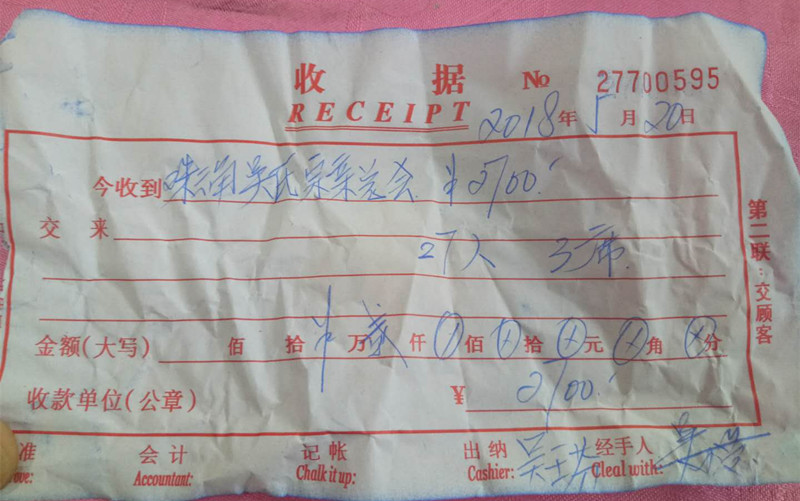 收 据 № 27700595
RECEIPT 2018年5月20日
今收到 吴氏宗亲总会 ¥2700.
交 来
27人 3席
金额(大写) 佰 拾 万 贰 仟 佰 拾 元 角 分
收款单位(公章) ¥ 2700.
准 会计 记帐 出纳 吴 经手人 吴
ove: Accountant: Chalk it up: Cashier: Cleal with:
第二联:交顾客